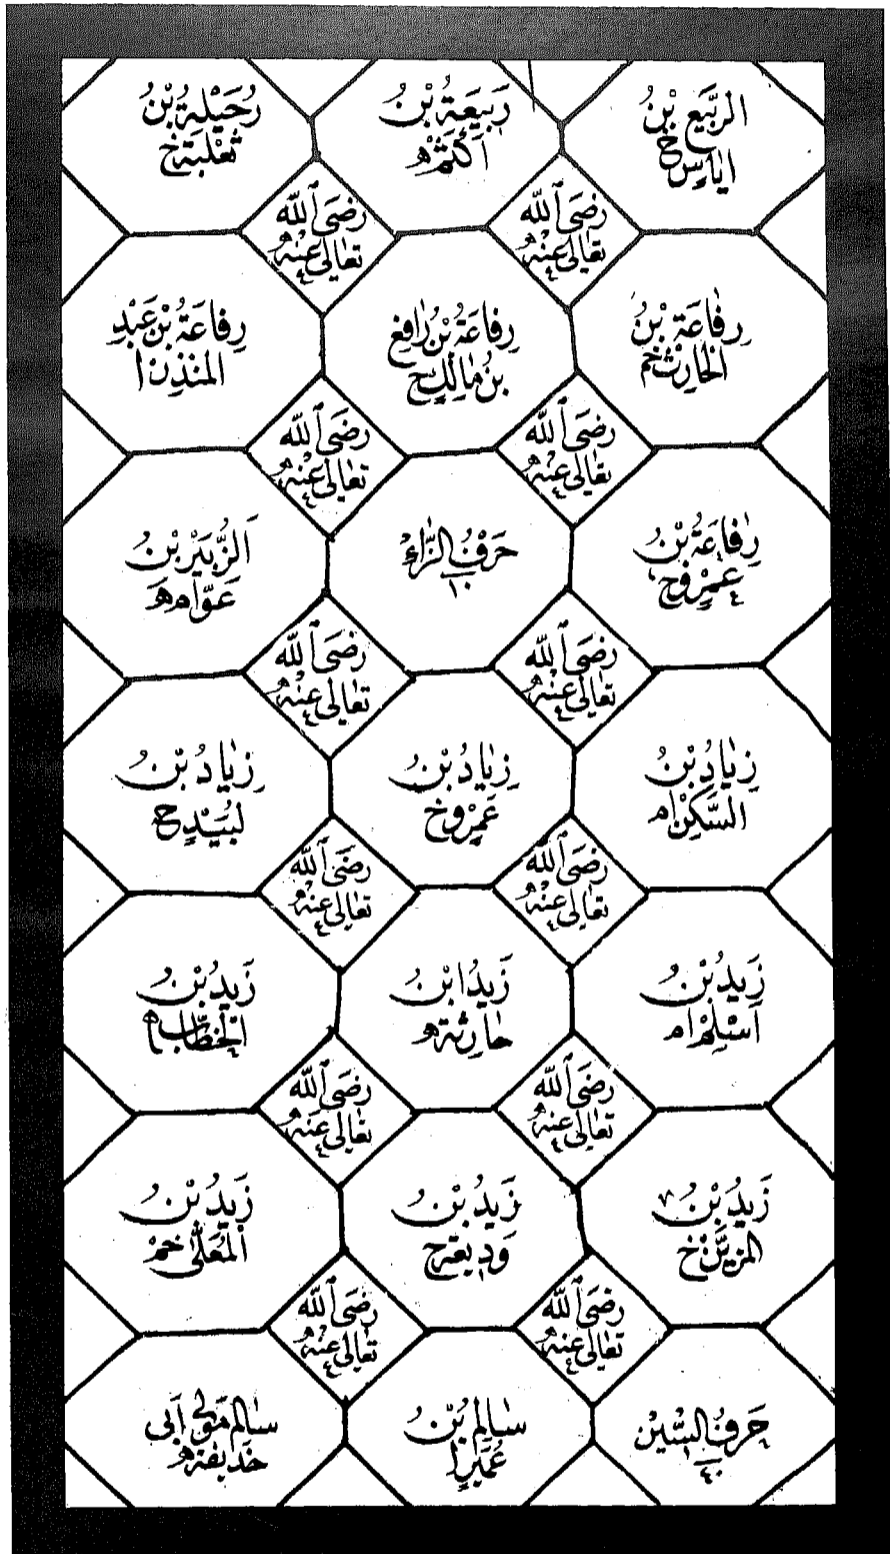 الرَّبِيعُ بْنُ
اِيَاسٍ خ
رَبِيعَةُ بْنُ
اَكْثَمْ ه
رُحَيْلَةُ بْنُ
ثَعْلَبَةَ خ
رَضِيَ ٱللّٰه
تَعَالٰى عَنْهُ
رَضِيَ ٱللّٰه
تَعَالٰى عَنْهُ
رِفَاعَةُ بْنُ
الْحَارِثْ خم
رِفَاعَةُ بْنُ رَافِعْ
بْنُ مَالِكٍ خ
رِفَاعَةُ بْنُ عَبْدِ
الْمُنْذِرْ ا
رَضِيَ ٱللّٰه
تَعَالٰى عَنْهُ
رَضِيَ ٱللّٰه
تَعَالٰى عَنْهُ
رِفَاعَةُ بْنُ
عَمْرٍو خ
حَرْفُ الزَّاءِ
١٠
اَلزُّبَيْرْ بْنُ
عَوَّامْ ه
رَضِيَ ٱللّٰه
تَعَالٰى عَنْهُ
رَضِيَ ٱللّٰه
تَعَالٰى عَنْهُ
زِيَادُ بْنُ
السَّكَنْ ام
زِيَادُ بْنُ
عَمْرٍو خ
زِيَادُ بْنُ
لَبِيدٍ خ
رَضِيَ ٱللّٰه
تَعَالٰى عَنْهُ
رَضِيَ ٱللّٰه
تَعَالٰى عَنْهُ
زَيْدُ بْنُ
اَسْلَمْ ام
زَيْدُ ابْنُ
حَارِثَةَ ه
زَيْدُ بْنُ
الْخَطَّابْ ه
رَضِيَ ٱللّٰه
تَعَالٰى عَنْهُ
رَضِيَ ٱللّٰه
تَعَالٰى عَنْهُ
زَيْدُ بْنُ
الْمُزَيَّنْ خ
زَيْدُ بْنُ
وَدِيعَةَ خ
زَيْدُ بْنُ
الْمُعَلّٰى خم
رَضِيَ ٱللّٰه
تَعَالٰى عَنْهُ
رَضِيَ ٱللّٰه
تَعَالٰى عَنْهُ
حَرْفُ السِّينْ
٤٠
سَالِمْ بْنُ
عُمَيْرٍ ا
سَالِمْ مَوْلٰى اَبِى
حُذَيْفَةَ ه